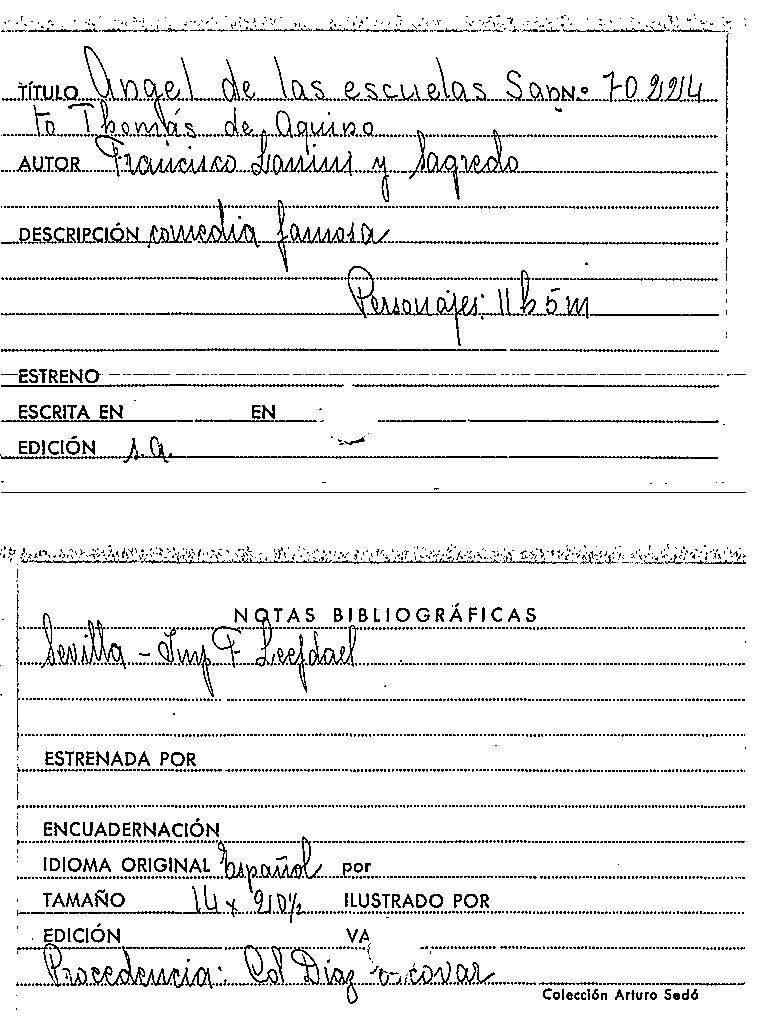 TÍTULO Angel de las escuelas San N.º 70224
to Thomás de Aquino
AUTOR Francisco Lanini y Sagredo
DESCRIPCIÓN comedia famosa
Personajes: 11 h 5 m
ESTRENO
ESCRITA EN EN
EDICIÓN s.a.
NOTAS BIBLIOGRÁFICAS
Sevilla - Imp F Leefdael
ESTRENADA POR
ENCUADERNACIÓN
IDIOMA ORIGINAL Español por
TAMAÑO 14 x 20½ ILUSTRADO POR
EDICIÓN VA
Procedencia: Col Díaz Escovar
Colección Arturo Sedó